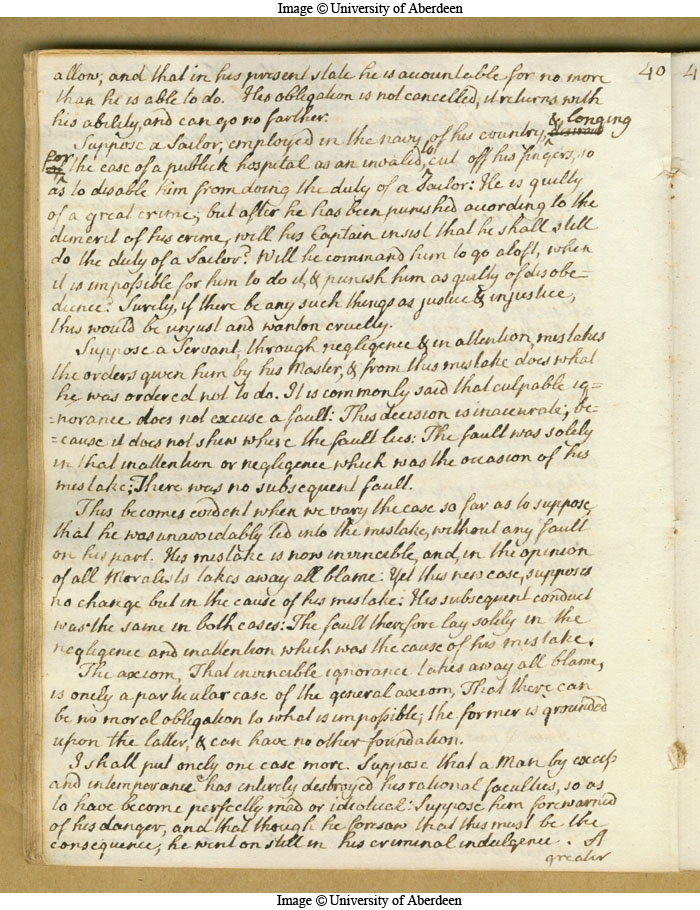 Image © University of Aberdeen
40
4
allow; and that in his present state he is accountable for no more
than he is able to do. His obligation is not cancelled, it returns with
his ability, and can go no farther.
Suppose a Sailor, employed in the navy of his country, & longing
for the ease of a publick hospital as an invalid, to cut off his fingers, so
as to disable him from doing the duty of a Sailor: He is guilty
of a great crime; but after he has been punished according to the
demerit of his crime, will his Captain insist that he shall still
do the duty of a Sailor? Will he command him to go aloft, when
it is impossible for him to do it, & punish him as guilty of disobe=
dience? Surely, if there be any such things as justice & injustice,
this would be unjust and wanton cruelty.
Suppose a Servant, through negligence & in attention mistakes
the orders given him by his Master, & from this mistake does what
he was ordered not to do. It is commonly said that culpable ig=
=norance does not excuse a fault: This decision is inaccurate, be=
=cause it does not shew where the fault lies: The fault was solely
in that inattention or negligence which was the occasion of his
mistake: There was no subsequent fault.
This becomes evident when we vary the case so far as to suppose,
that he was unavoidably led into the mistake, without any fault
on his part. His mistake is now invincible, and, in the opinion
of all Moralists takes away all blame: Yet this new case, supposes
no change but in the cause of his mistake: His subsequent conduct
was the same in both cases: The fault therefore lay solely in the
negligence and inattention which was the cause of his mistake.
The axiom, That invincible ignorance takes away all blame,
is onely a particular case of the general axiom, That there can
be no moral obligation to what is impossible; the former is grounded
upon the latter, & can have no other foundation.
I shall put onely one case more. Suppose that a Man by excess
and intemperance has entirely destroyed his rational faculties, so as
to have become perfectly mad or ideotical: Suppose him forewarned
of his danger, and that though he foresaw that this must be the
consequence, he went on still in his criminal indulgence. A
greater
Image © University of Aberdeen